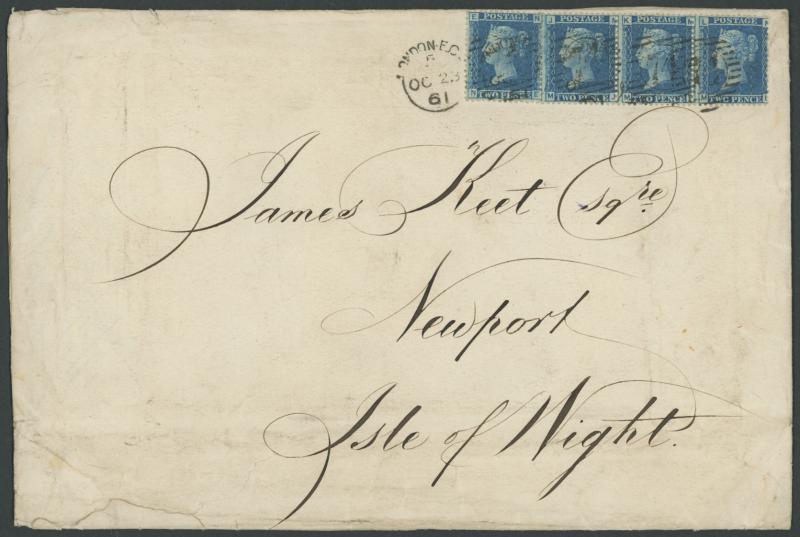 POSTAGE POSTAGE POSTAGE POSTAGE
TWO PENCE TWO PENCE TWO PENCE TWO PENCE
LONDON·E.C
OC 23
61
James Keet Esqre
Newport
Isle of Wight.